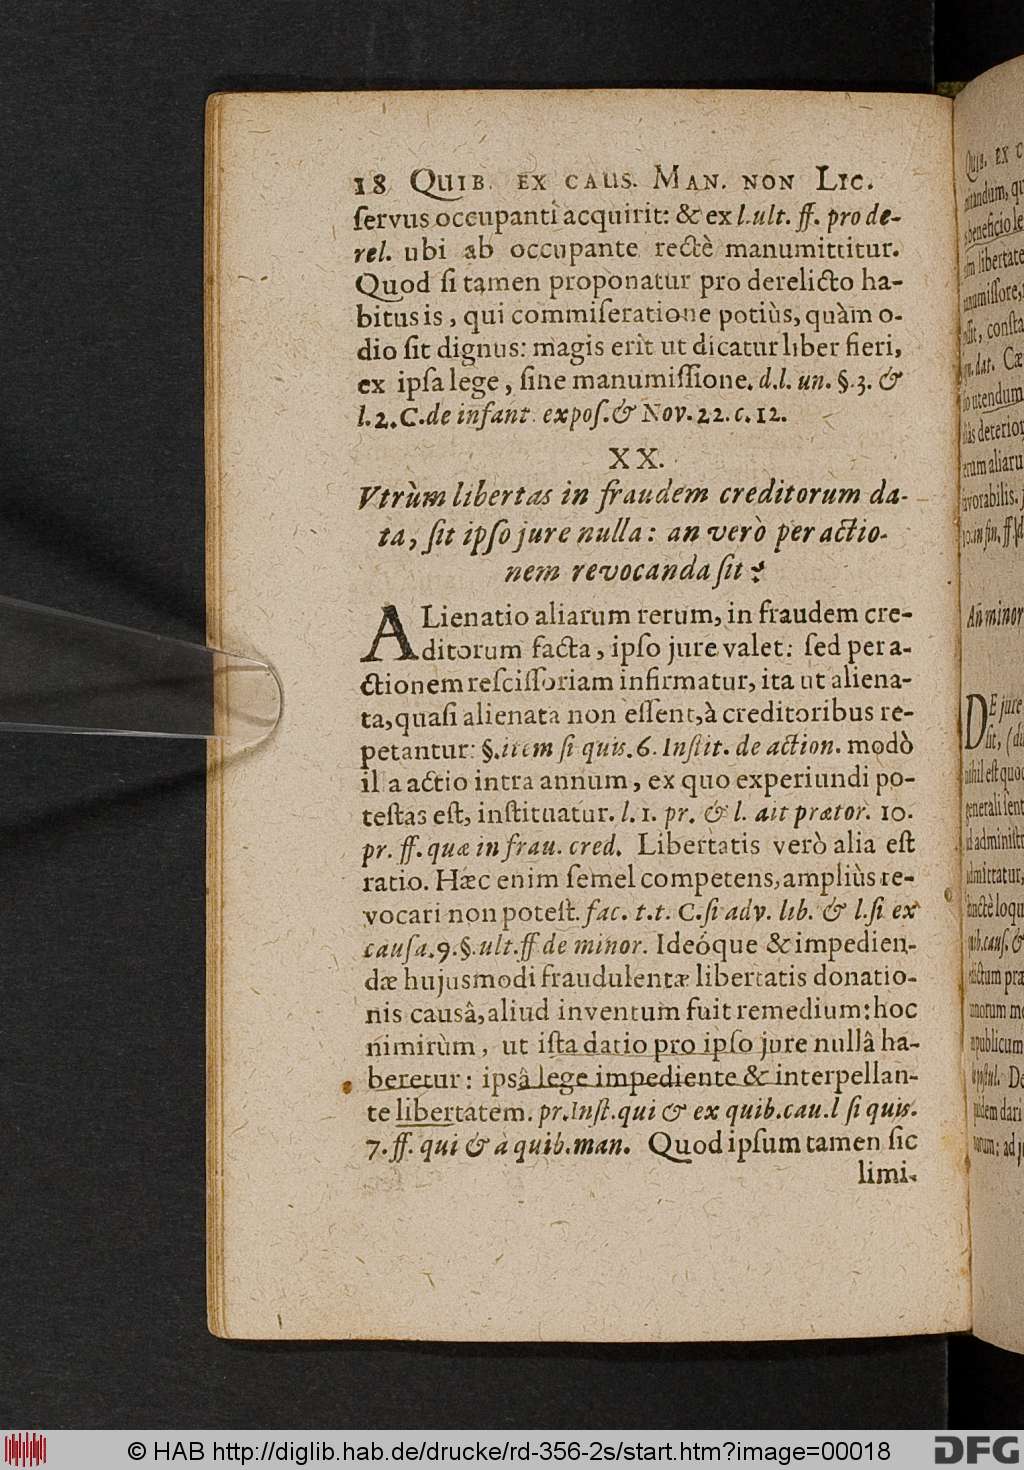 18 QUIB. EX CAUS. MAN. NON LIC.
ſervus occupanti acquirit: & ex l. ult. ff. pro de-
rel. ubi ab occupante rectè manumittitur.
Quod ſi tamen proponatur pro derelicto ha-
bitus is, qui commiſeratione potiùs, quàm o-
dio ſit dignus: magis erit ut dicatur liber fieri,
ex ipſa lege, ſine manumiſſione. d.l. un. §.3. &
l.2.C.de infant. expoſ.& Nov.22.c.12.
XX.
Vtrùm libertas in fraudem creditorum da-
ta, ſit ipſo jure nulla: an verò per actio-
nem revocanda ſit?
ALienatio aliarum rerum, in fraudem cre-
ditorum facta, ipſo jure valet: ſed per a-
ctionem reſciſſoriam infirmatur, ita ut aliena-
ta, quaſi alienata non eſſent, à creditoribus re-
petantur: §.item ſi quis.6. Inſtit. de action. modò
illa actio intra annum, ex quo experiundi po-
teſtas eſt, inſtituatur. l. 1. pr. & l. ait prætor. 10.
pr. ff. quæ in frau. cred. Libertatis verò alia eſt
ratio. Hæc enim ſemel competens, ampliùs re-
vocari non poteſt. fac. t.t. C.ſi adv. lib. & l.ſi ex
cauſa.9.§.ult.ff de minor. Ideóque & impedien-
dæ hujusmodi fraudulentæ libertatis donatio-
nis causâ, aliud inventum fuit remedium: hoc
nimirùm, ut iſta datio pro ipſo jure nullâ ha-
beretur: ipsâ lege impediente & interpellan-
te libertatem. pr.Inſt.qui & ex quib.cau.l ſi quis.
7.ff. qui & à quib.man. Quod ipſum tamen ſic
limi-
© HAB http://diglib.hab.de/drucke/rd-356-2s/start.htm?image=00018
DFG